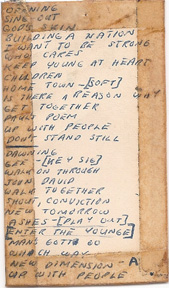 OPENING
SING OUT
GOD'S SKIN
BUILDING A NATION
I WANT TO BE STRONG
WHO CARES
KEEP YOUNG AT HEART
CHILDREN
HOME TOWN-[SOFT]
IS THERE A REASON WHY
GET TOGETHER
PAUL'S POEM
UP WITH PEOPLE
DON'T STAND STILL
DAWNING
-[KEY SIG]
WALK ON THROUGH
JOHN DAVID
WALK TOGETHER
SHOUT, CONVICTION
NEW TOMORROW
ASHES-[PLAY OUT]
ENTER THE YOUNG
MAN'S GOTTA GO
WHICH WAY
NEW DIMENSION-A
UP WITH PEOPLE